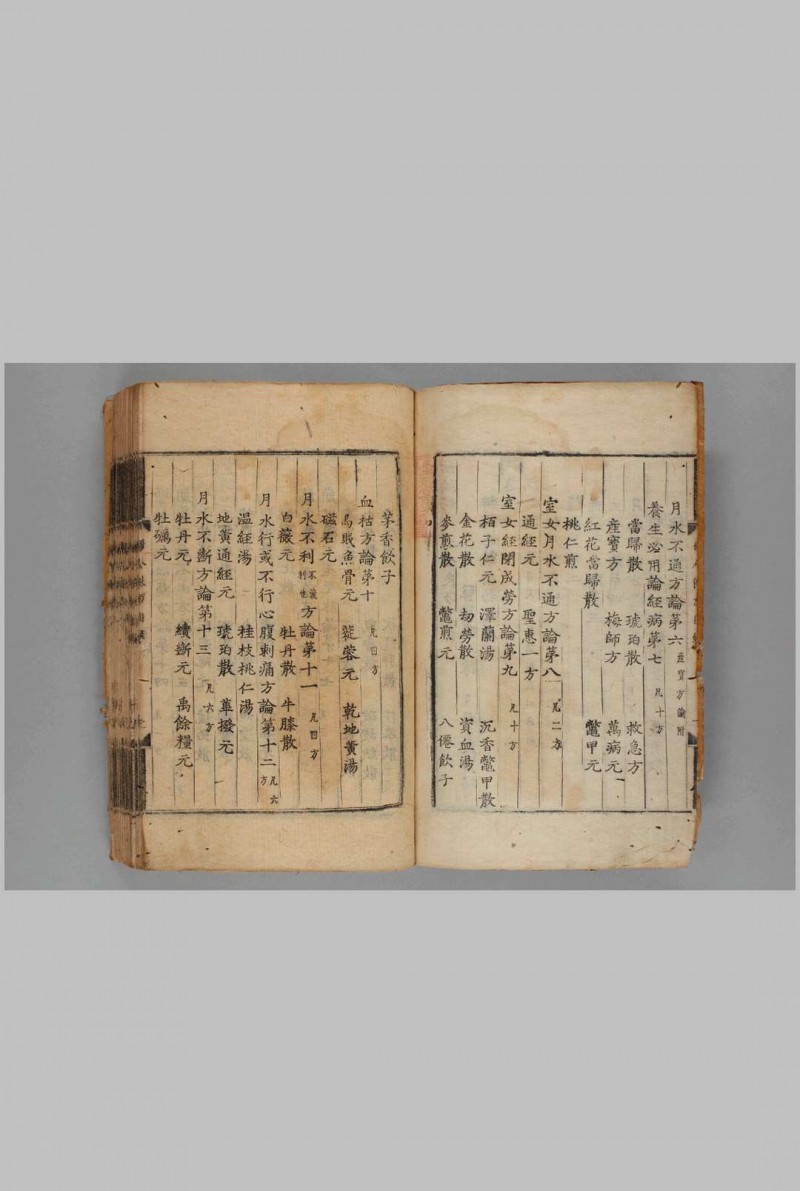 月水不通方論第六 產寶方論附
養生必用論經病第七 凡十方
當歸散 琥珀散 救急方
產寶方 梅師方 萬病元
紅花當歸散 鱉甲元
桃仁煎
室女月水不通方論第八 凡二方
通經元 聖惠一方
室女經閉成勞方論第九 凡十方
栢子仁元 澤蘭湯 沉香鱉甲散
金花散 劫勞散 資血湯
麥煎散 鱉煎元 八僊飲子
茅香飲子
血枯方論第十 凡四方
烏賊魚骨元 蓯蓉元 乾地黃湯
磁石元
月水不利方論第十一 凡四方
白薇元 牡丹散 牛膝散
月水行或不行心腹刺痛方論第十二 凡六方
溫經湯 桂枝桃仁湯
地黃通經元 琥珀散 蓽撥元
月水不斷方論第十三 凡六方
牡丹元 續斷元 禹餘糧元
牡礪元